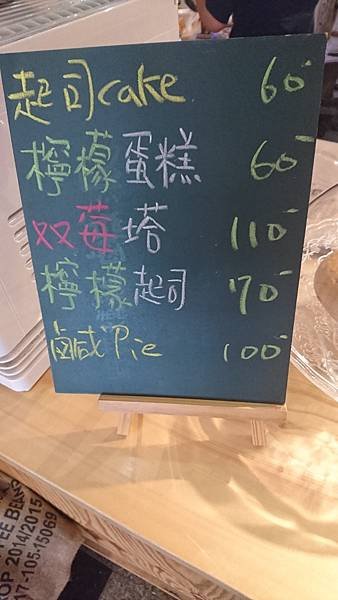 起司cake 60
檸檬蛋糕 60
双莓塔 110
檸檬起司 70
鹹Pie 100
2014/2015
17-105-15069